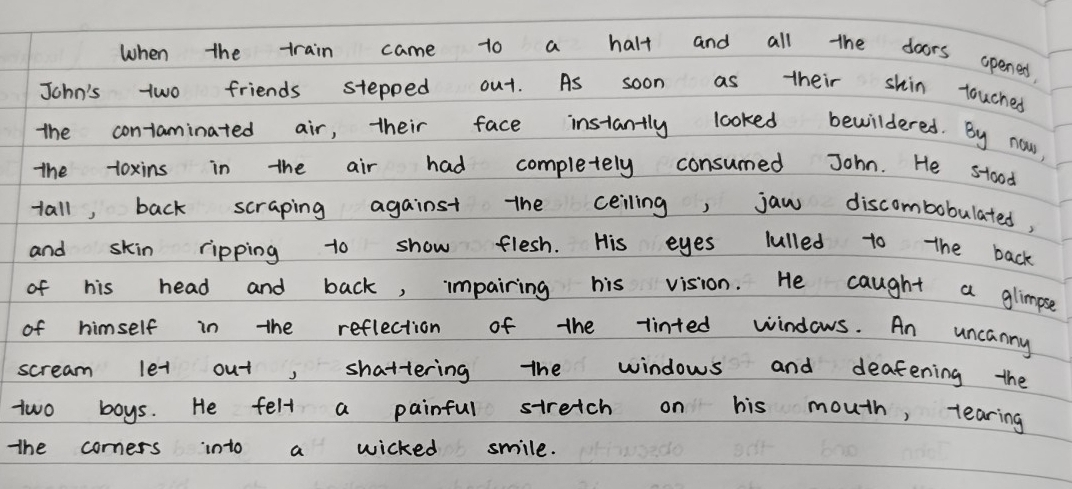 When the train came to a halt and all the doors opened,
John's two friends stepped out. As soon as their skin touched
the contaminated air, their face instantly looked bewildered. By now,
the toxins in the air had completely consumed John. He stood
tall, back scraping against the ceiling, jaw discombobulated,
and skin ripping to show flesh. His eyes lulled to the back
of his head and back, impairing his vision. He caught a glimpse
of himself in the reflection of the tinted windows. An uncanny
scream let out, shattering the windows and deafening the
two boys. He felt a painful stretch on his mouth, tearing
the corners into a wicked smile.